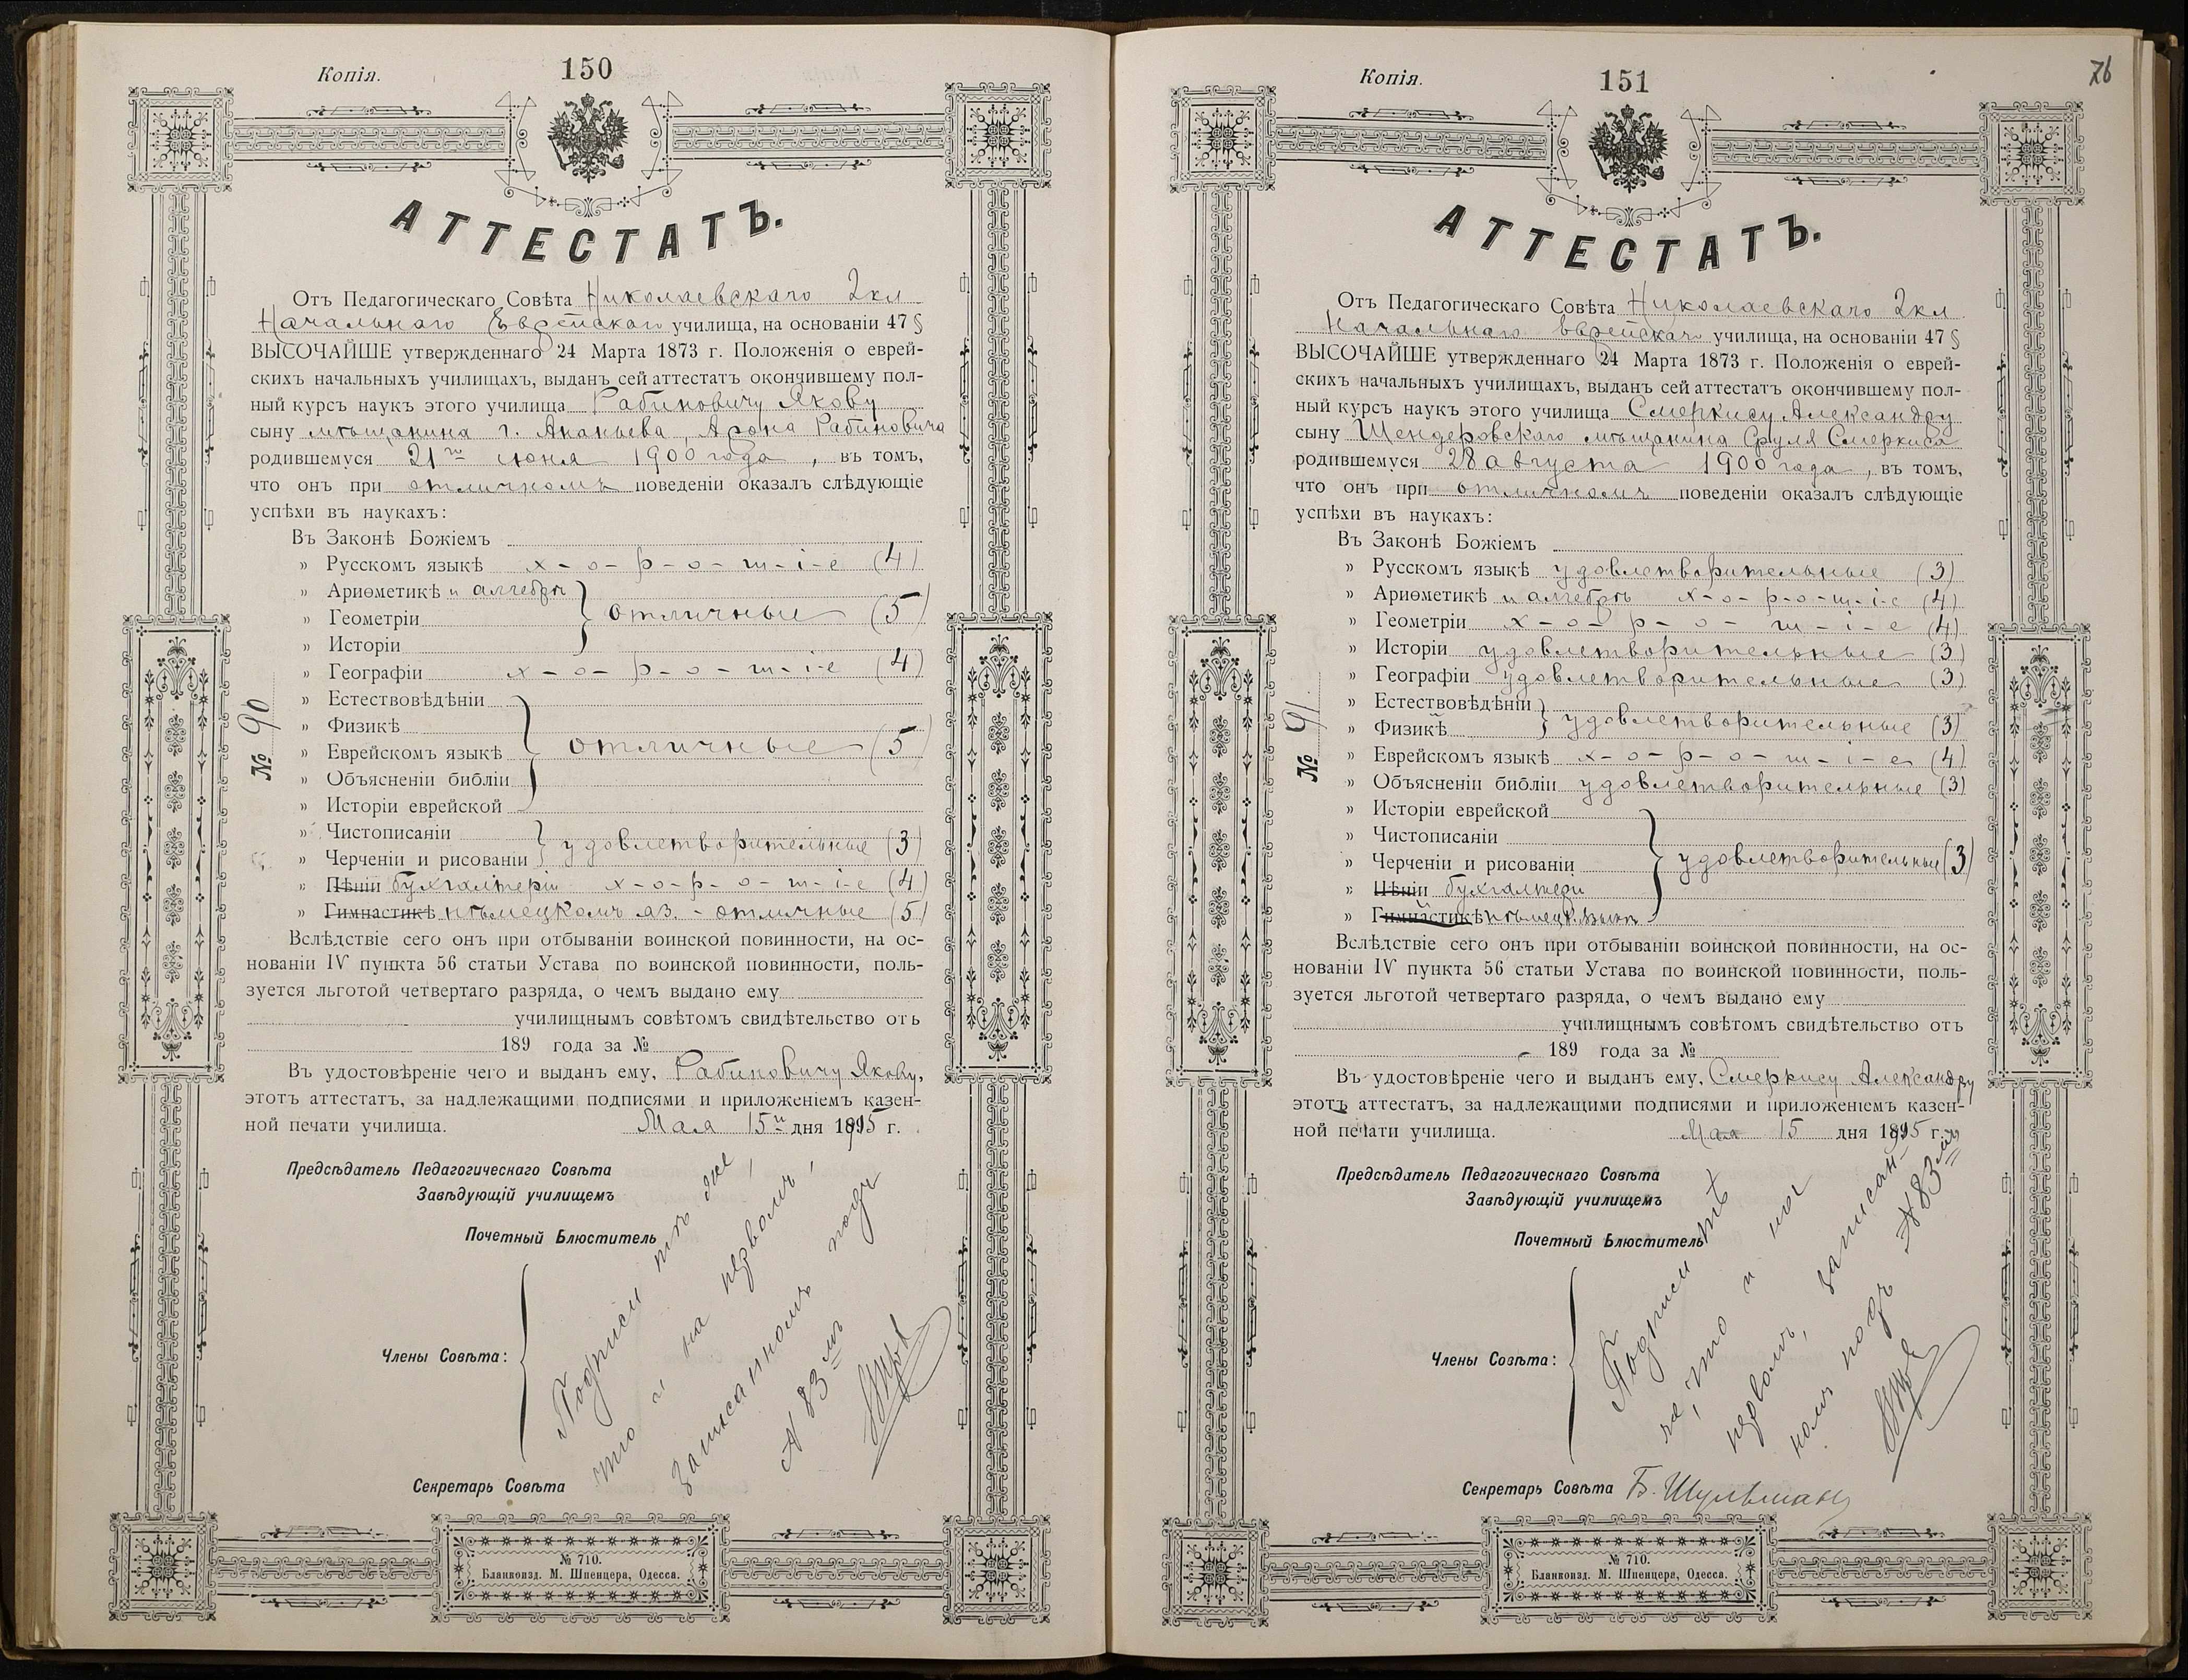 Копія.
150
АТТЕСТАТЪ.
Отъ Педагогическаго Совѣта Николаевскаго 2кл
Начальнаго Еврейскаго училища, на основаніи 47 §
ВЫСОЧАЙШЕ утвержденнаго 24 Марта 1873 г. Положенія о еврей-
скихъ начальныхъ училищахъ, выданъ сей аттестатъ окончившему пол-
ный курсъ наукъ этого училища Рабиновичу Якову
сыну мѣщанина г. Ананьева, Арона Рабиновича
родившемуся 21го іюня 1900 года, въ томъ,
что онъ при отличномъ поведеніи оказалъ слѣдующіе
успѣхи въ наукахъ:
Въ Законѣ Божіемъ
» Русскомъ языкѣ х-о-р-о-ш-і-е (4)
» Ариѳметикѣ и алгебрѣ
» Геометріи отличные (5)
» Исторіи
» Географіи х-о-р-о-ш-і-е (4)
» Естествовѣдѣніи
» Физикѣ
» Еврейскомъ языкѣ отличные (5)
» Объясненіи библіи
» Исторіи еврейской
» Чистописаніи
» Черченіи и рисованіи удовлетворительные (3)
» Пѣніи бухгалтеріи х-о-р-о-ш-і-е (4)
» Гимнастикѣ нѣмецкомъ яз. - отличные (5)
№ 90
Вслѣдствіе сего онъ при отбываніи воинской повинности, на ос-
нованіи IV пункта 56 статьи Устава по воинской повинности, поль-
зуется льготой четвертаго разряда, о чемъ выдано ему
училищнымъ совѣтомъ свидѣтельство отъ
189 года за №
Въ удостовѣреніе чего и выданъ ему, Рабиновичу Якову,
этотъ аттестатъ, за надлежащими подписями и приложеніемъ казен-
ной печати училища. Мая 15го дня 1915 г.
Предсѣдатель Педагогическаго Совѣта
Завѣдующій училищемъ
Почетный Блюститель
Члены Совѣта:
Подписи тѣ же,
что и на первомъ,
записанномъ подъ
№ 83мъ
Секретарь Совѣта
№ 710.
Бланкоизд. М. Шпенцера, Одесса.
Копія.
151
76
АТТЕСТАТЪ.
Отъ Педагогическаго Совѣта Николаевскаго 2кл
Начальнаго еврейскаго училища, на основаніи 47 §
ВЫСОЧАЙШЕ утвержденнаго 24 Марта 1873 г. Положенія о еврей-
скихъ начальныхъ училищахъ, выданъ сей аттестатъ окончившему пол-
ный курсъ наукъ этого училища Смеркису Александру
сыну Шендеровскаго мѣщанина Сруля Смеркиса
родившемуся 28 августа 1900 года, въ томъ,
что онъ при отличномъ поведеніи оказалъ слѣдующіе
успѣхи въ наукахъ:
Въ Законѣ Божіемъ
» Русскомъ языкѣ удовлетворительные (3)
» Ариѳметикѣ и алгебрѣ х-о-р-о-ш-і-е (4)
» Геометріи х-о-р-о-ш-і-е (4)
» Исторіи удовлетворительные (3)
» Географіи удовлетворительные (3)
» Естествовѣдѣніи
» Физикѣ удовлетворительные (3)
» Еврейскомъ языкѣ х-о-р-о-ш-і-е (4)
» Объясненіи библіи удовлетворительные (3)
» Исторіи еврейской
» Чистописаніи
» Черченіи и рисованіи удовлетворительные (3)
» Пѣніи бухгалтеріи
» Гимнастикѣ нѣмецк. языкѣ
№ 91.
Вслѣдствіе сего онъ при отбываніи воинской повинности, на ос-
нованіи IV пункта 56 статьи Устава по воинской повинности, поль-
зуется льготой четвертаго разряда, о чемъ выдано ему
училищнымъ совѣтомъ свидѣтельство отъ
189 года за №
Въ удостовѣреніе чего и выданъ ему, Смеркису Александру
этотъ аттестатъ, за надлежащими подписями и приложеніемъ казен-
ной печати училища. Мая 15 дня 1915 г.
Предсѣдатель Педагогическаго Совѣта
Завѣдующій училищемъ
Почетный Блюститель
Члены Совѣта:
Подписи тѣ
же, что и на
первомъ, записан-
номъ подъ № 83мъ
Секретарь Совѣта Б. Шульманъ
№ 710.
Бланкоизд. М. Шпенцера, Одесса.